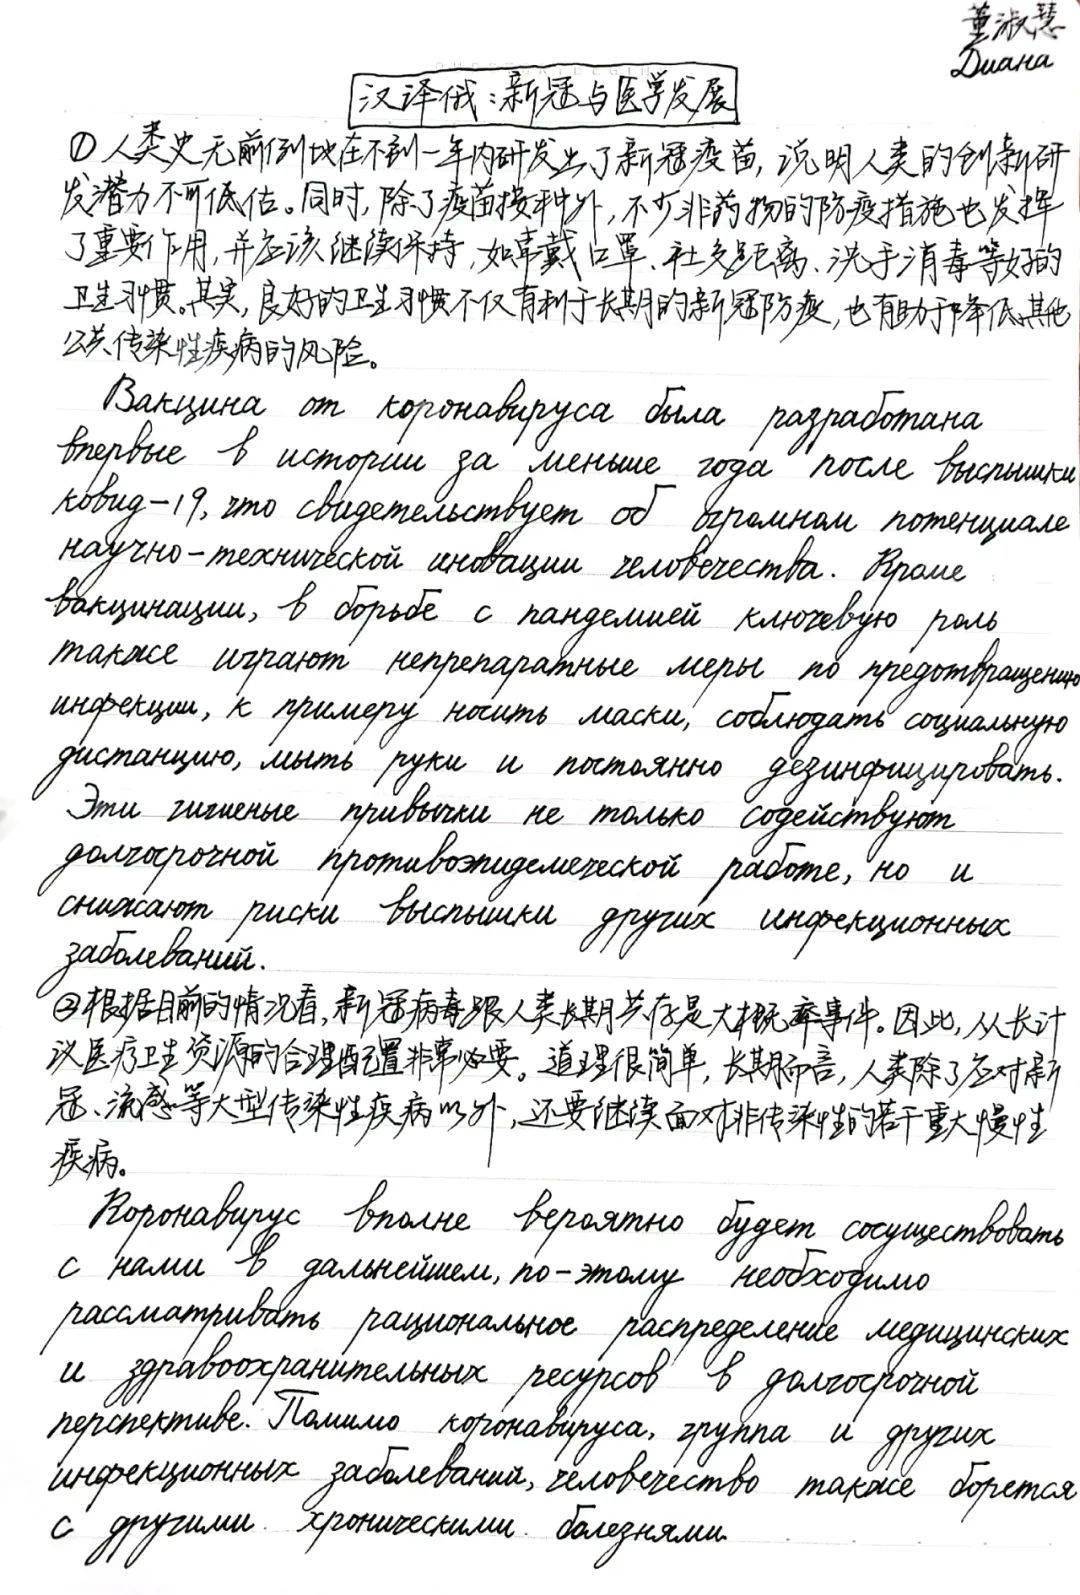 董淑慧
Диана
汉译俄：新冠与医学发展
① 人类史无前例地在不到一年内研发出了新冠疫苗，说明人类的创新研
发潜力不可低估。同时，除了疫苗接种外，不少非药物的防疫措施也发挥
了重要作用，并应该继续保持，如常戴口罩、社交距离、洗手消毒等好的
卫生习惯。其实，良好的卫生习惯不仅有利于长期的新冠防疫，也有助于降低其他
公共传染性疾病的风险。
Вакцина от коронавируса была разработана
впервые в истории за меньше года после выспышки
ковид-19, что свидетельствует об огромном потенциале
научно-технической иновации человечества. Кроме
вакцинации, в борьбе с пандемией ключевую роль
также играют непрепаратные меры по предотвращению
инфекции, к примеру носить маски, соблюдать социальную
дистанцию, мыть руки и постоянно дезинфицировать.
Эти гигиеные привычки не только содействуют
долгосрочной противоэпидемеческой работе, но и
снижают риски выспышки других инфекционных
заболеваний.
② 根据目前的情况看，新冠病毒跟人类长期共存是大概率事件。因此，从长计
议医疗卫生资源的合理配置非常必要。道理很简单，长期而言，人类除了应对新
冠、流感等大型传染性疾病以外，还要继续面对非传染性的若干重大慢性
疾病。
Коронавирус вполне вероятно будет сосуществовать
с нами в дальнейшем, по-этому необходимо
рассматривать рациональное распределение медицинских
и здравоохранительных ресурсов в долгосрочной
перспективе. Помимо коронавируса, группа и других
инфекционных заболеваний, человечество также борется
с другими хроническими болезнями.